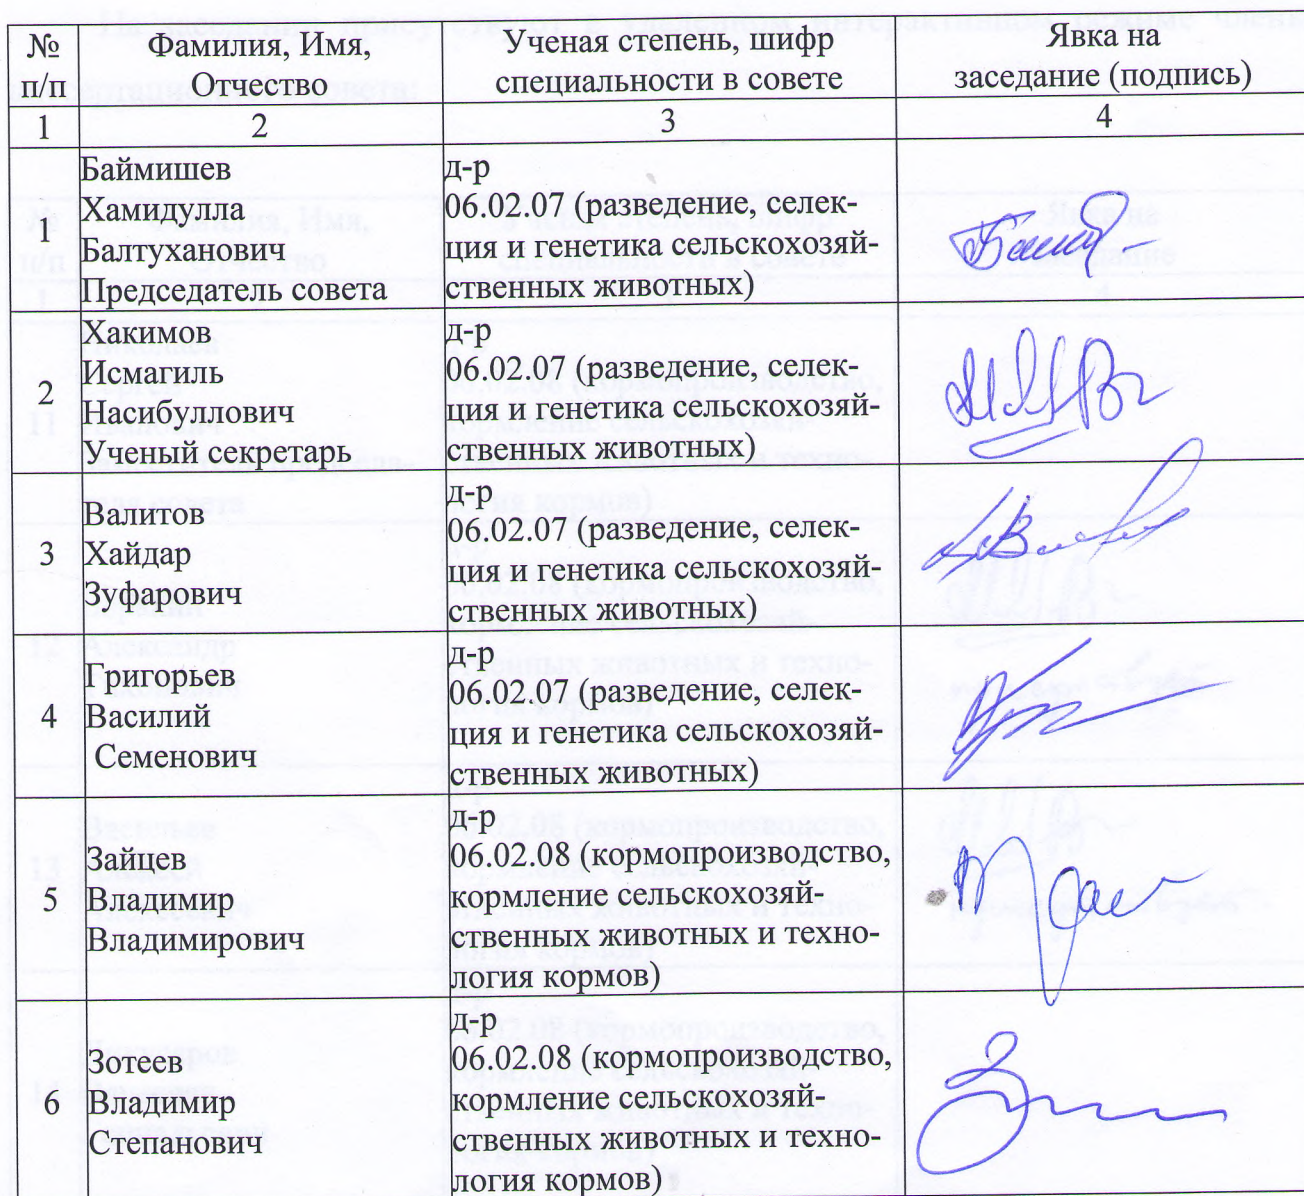 № п/п
Фамилия, Имя, Отчество
Ученая степень, шифр специальности в совете
Явка на заседание (подпись)
1 2 3 4
1
Баймишев
Хамидулла
Балтуханович
Председатель совета
д-р
06.02.07 (разведение, селек-
ция и генетика сельскохозяй-
ственных животных)
2
Хакимов
Исмагиль
Насибуллович
Ученый секретарь
д-р
06.02.07 (разведение, селек-
ция и генетика сельскохозяй-
ственных животных)
3
Валитов
Хайдар
Зуфарович
д-р
06.02.07 (разведение, селек-
ция и генетика сельскохозяй-
ственных животных)
4
Григорьев
Василий
Семенович
д-р
06.02.07 (разведение, селек-
ция и генетика сельскохозяй-
ственных животных)
5
Зайцев
Владимир
Владимирович
д-р
06.02.08 (кормопроизводство,
кормление сельскохозяй-
ственных животных и техно-
логия кормов)
6
Зотеев
Владимир
Степанович
д-р
06.02.08 (кормопроизводство,
кормление сельскохозяй-
ственных животных и техно-
логия кормов)